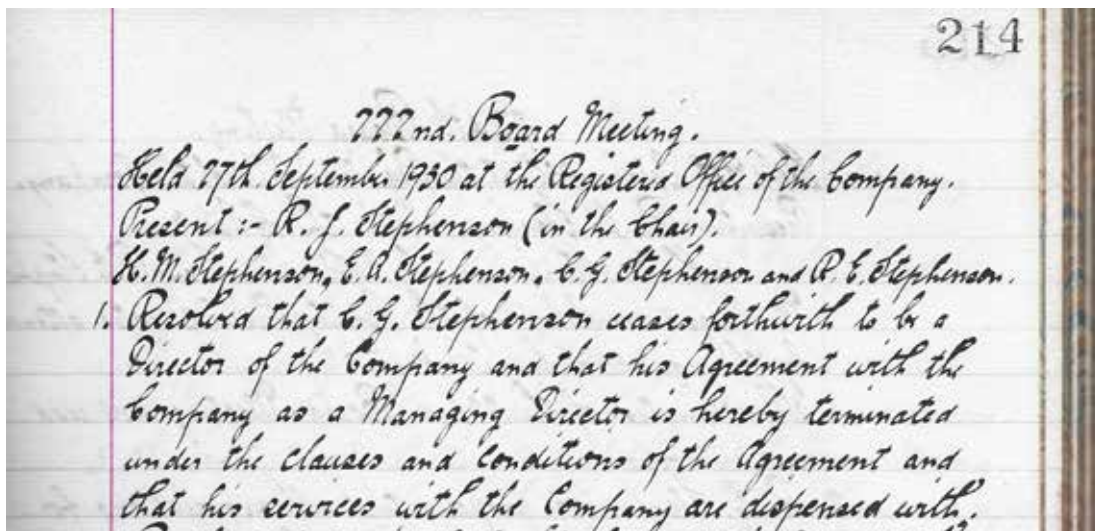 214
222nd. Board Meeting.
Held 27th. September 1930 at the Registered Office of the Company.
Present :- R. J. Stephenson (in the Chair).
H. M. Stephenson, E. A. Stephenson, C. G. Stephenson and R. E. Stephenson.
1. Resolved that C. G. Stephenson ceases forthwith to be a
Director of the Company and that his Agreement with the
Company as a Managing Director is hereby terminated
under the clauses and Conditions of the Agreement and
that his services with the Company are dispensed with.